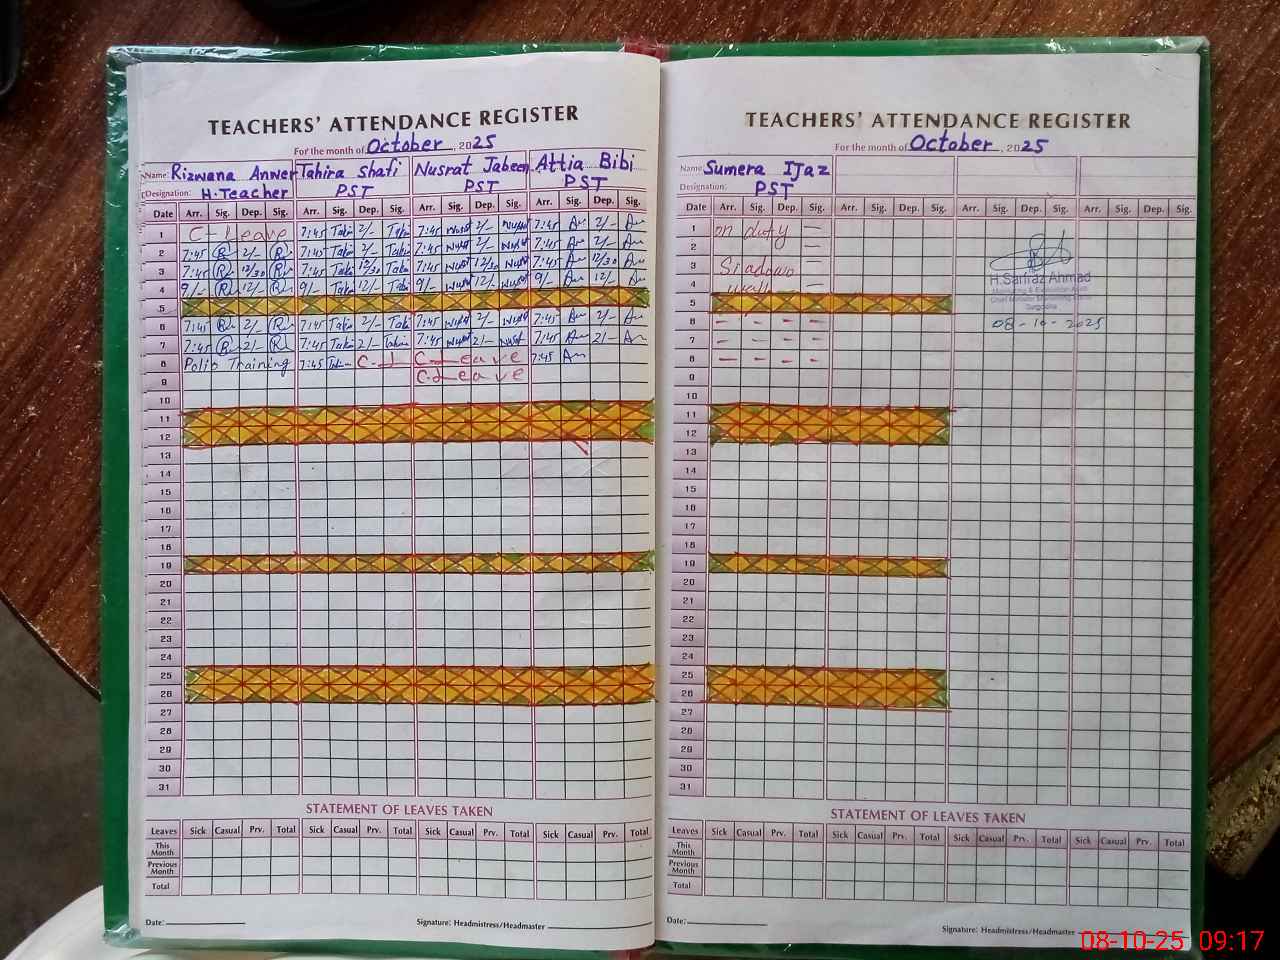 TEACHERS' ATTENDANCE REGISTER
For the month of October, 2025
Name: Rizwana Anwer Tahira Shafi Nusrat Jabeen Attia Bibi
Designation: H.Teacher PST PST PST
Date Arr. Sig. Dep. Sig. Arr. Sig. Dep. Sig. Arr. Sig. Dep. Sig. Arr. Sig. Dep. Sig.
1 C-Leave 7:45 2/- 7:45 2/- 7:45 2/-
2 7:45 2/- 7:45 2/- 7:45 2/- 7:45 2/-
3 7:45 12/30 7:45 12/30 7:45 12/30 7:45 12/30
4 9/- 12/- 9/- 12/- 9/- 12/- 9/- 12/-
5
6 7:45 2/- 7:45 2/- 7:45 2/- 7:45 2/-
7 7:45 2/- 7:45 2/- 7:45 2/- 7:45 2/-
8 Polio Training 7:45 C-L C-Leave 7:45
9 C.Leave
10
11
12
13
14
15
16
17
18
19
20
21
22
23
24
25
26
27
28
29
30
31
STATEMENT OF LEAVES TAKEN
Leaves Sick Casual Prv. Total Sick Casual Prv. Total Sick Casual Prv. Total Sick Casual Prv. Total
This Month
Previous Month
Total
Date: Signature: Headmistress/Headmaster
TEACHERS' ATTENDANCE REGISTER
For the month of October, 2025
Name: Sumera IJaz
Designation: PST
Date Arr. Sig. Dep. Sig. Arr. Sig. Dep. Sig. Arr. Sig. Dep. Sig. Arr. Sig. Dep. Sig.
1 on duty —
2 —
3 —
4 —
5
6 - - - -
7 - - - -
8 - - - -
9
10
11
12
13
14
15
16
17
18
19
20
21
22
23
24
25
26
27
28
29
30
31
H.Sarfraz Ahmad
Sargodha
08-10-2025
STATEMENT OF LEAVES TAKEN
Leaves Sick Casual Prv. Total Sick Casual Prv. Total Sick Casual Prv. Total Sick Casual Prv. Total
This Month
Previous Month
Total
Date: Signature: Headmistress/Headmaster
08-10-25 09:17